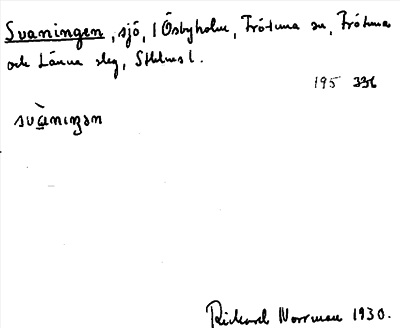 Svaningen, sjö, 1 Ösbyholm, Frötuna sn, Frötuna
och Länna slg, Sthlms l.
195 336
svà̱niŋən
Rickard Norrman 1930.